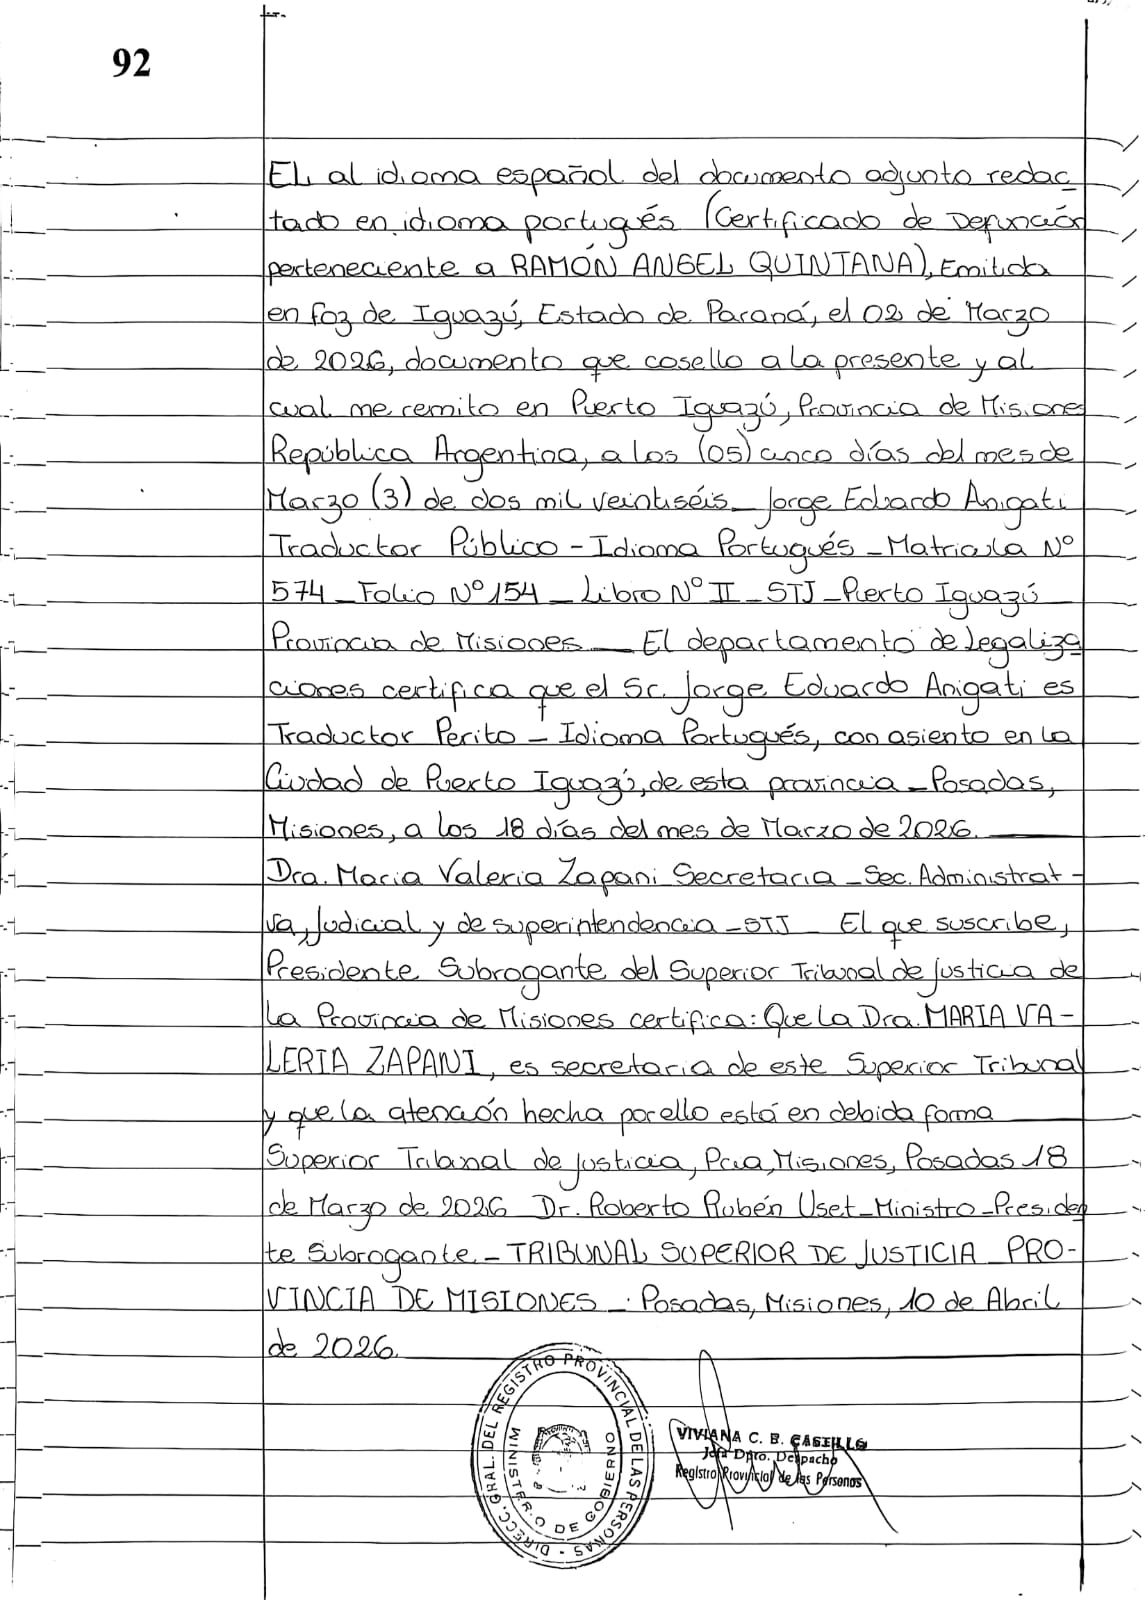 92
EL al idioma español del documento adjunto redac
tado en idioma portugués (Certificado de Defunción
perteneciente a RAMÓN ANGEL QUINTANA), Emitida
en foz de Iguazú, Estado de Paraná, el 02 de Marzo
de 2026, documento que cosello a la presente y al
cual me remito en Puerto Iguazú, Provincia de Misiones
República Argentina, a los (05) cinco días del mes de
Marzo (3) de dos mil veintiséis_ Jorge Eduardo Anigati
Traductor Público - Idioma Portugués - Matricula Nº
574 _ Folio Nº 154 _ Libro Nº II _ STJ _ Puerto Iguazú
Provincia de Misiones _ El departamento de Legaliza
ciones certifica que el Sr. Jorge Eduardo Anigati es
Traductor Perito - Idioma Portugués, con asiento en la
Ciudad de Puerto Iguazú, de esta provincia _ Posadas,
Misiones, a los 18 días del mes de Marzo de 2026.
Dra. Maria Valeria Zapani Secretaria _ Sec. Administrat -
va, Judicial y de superintendencia - STJ _ El que suscribe,
Presidente Subrogante del Superior Tribunal de justicia de
La Provincia de Misiones certifica: Que la Dra. MARIA VA-
LERIA ZAPANI, es secretaria de este Superior Tribunal
y que la atención hecha por ello está en debida forma
Superior Tribunal de justicia, Pcia, Misiones, Posadas 18
de Marzo de 2026 Dr. Roberto Rubén Uset _ Ministro _ Presiden
te Subrogante. - TRIBUNAL SUPERIOR DE JUSTICIA _ PRO-
VINCIA DE MISIONES _ . Posadas, Misiones, 10 de Abril
de 2026.
DIRECC. GRAL. DEL REGISTRO PROVINCIAL DE LAS PERSONAS -
MINISTERIO DE GOBIERNO
VIVIANA C. B. CASTILLO
Jefa Dpto. Despacho
Registro Provincial de las Personas